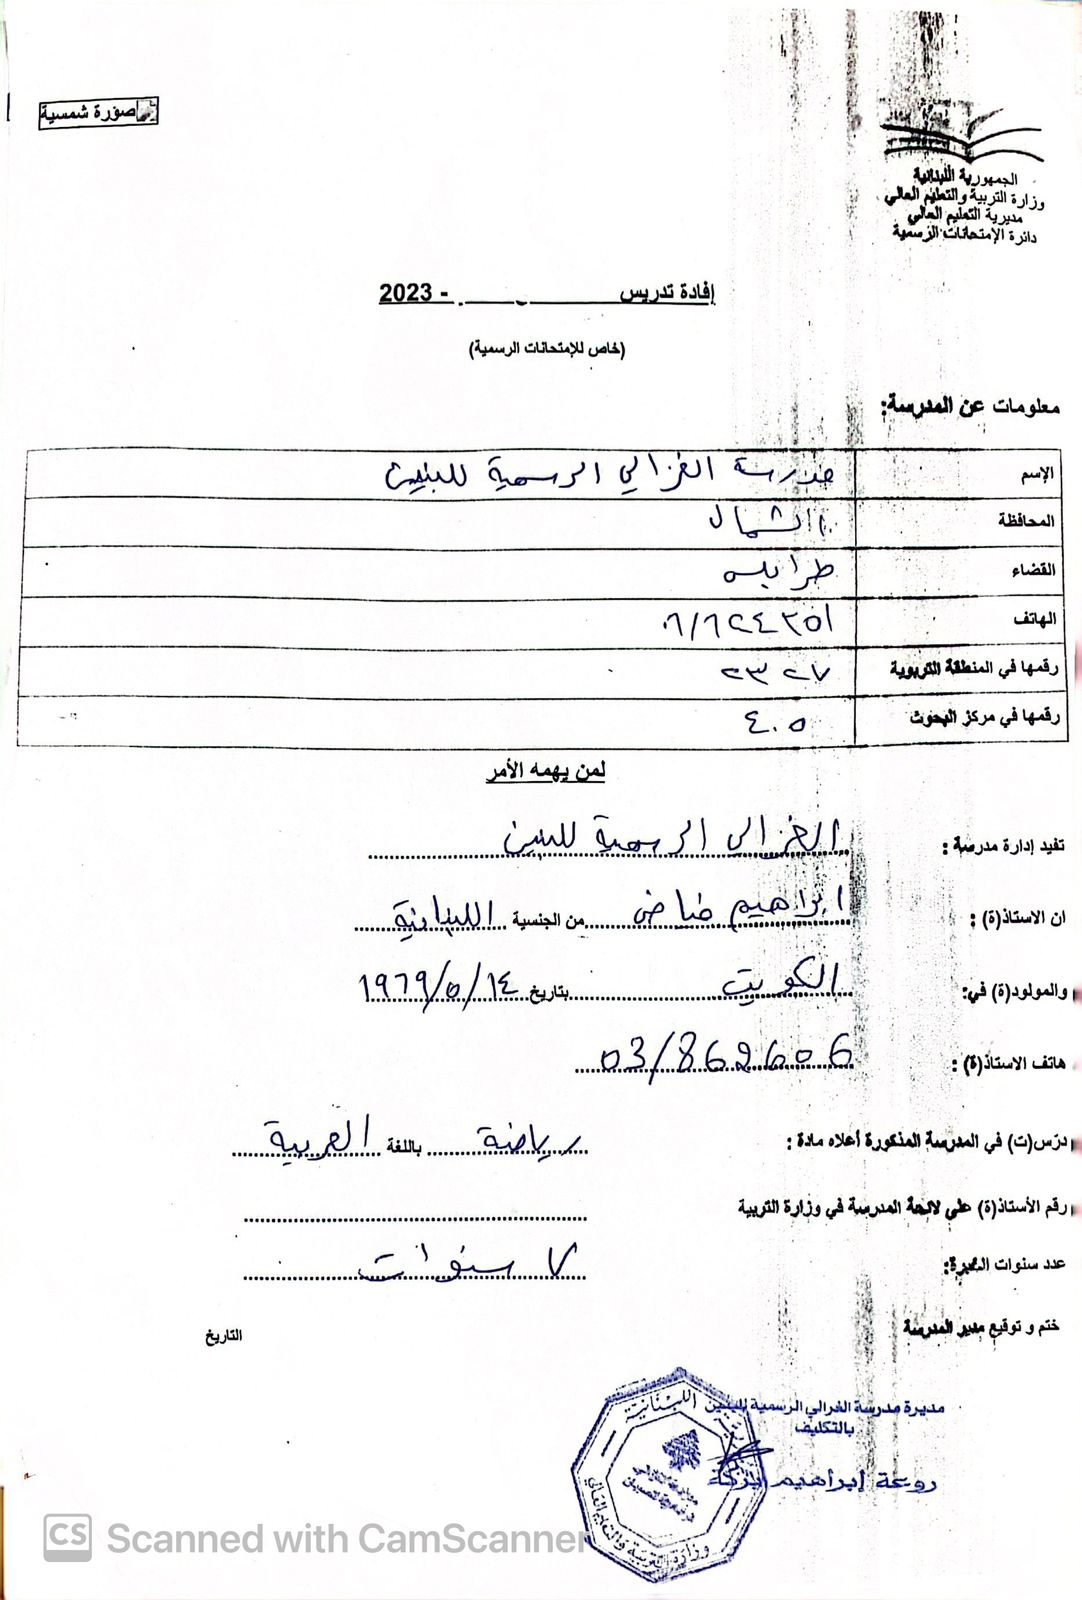 صورة شمسية
الجمهورية اللبنانية
وزارة التربية والتعليم العالي
مديرية التعليم العالي
دائرة الإمتحانات الرسمية
إفادة تدريس ـــــــــــ - 2023
(خاص للإمتحانات الرسمية)
معلومات عن المدرسة:
الإسم مدرسة الغزالي الرسمية للبنين
المحافظة الشمال
القضاء طرابلس
الهاتف ٠٦/٦٢٤٣٥١
رقمها في المنطقة التربوية ٢٣٢٧
رقمها في مركز البحوث ٤٠٥
لمن يهمه الأمر
تفيد إدارة مدرسة : الغزالي الرسمية للبنين
ان الاستاذ(ة) : ابراهيم من الجنسية اللبنانية
والمولود(ة) في: الكويت بتاريخ ١٩٦٩/٥/١٤
هاتف الاستاذ(ة) : 03/862606
درّس(ت) في المدرسة المذكورة أعلاه مادة : رياضة باللغة العربية
رقم الأستاذ(ة) على لائحة المدرسة في وزارة التربية
عدد سنوات الخبرة: ٧ سنوات
ختم و توقيع مدير المدرسة التاريخ
مديرة مدرسة الغزالي الرسمية للبنين
بالتكليف
روعة إبراهيم
اللبنانية
وزارة التربية والتعليم العالي
CS Scanned with CamScanner